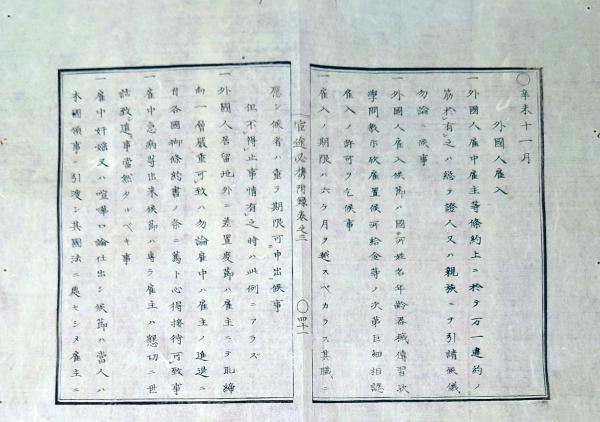 〇辛未十一月
外國人雇入
一外國人雇中雇主等條約上ニ於テ万一違約ノ
筋於有之ハ總テ證人又ハ親族ニテ引請候儀
勿論ニ候事
一外國人雇入候節ハ國所姓名年齢器械傳習欤
學問教示欤雇置候所給金等ノ次第巨細相認
雇入ノ許可ヲ乞候事
一雇入ノ期限ハ六ケ月ヲ越スベカラス其職ニ
宦途必携附録巻之三
〇四十一
應シ候者ハ重ヲ期限可申出候事
但不得止事情有之時ハ此例ニアラズ
一外國人居留地外ニ差置慶節ハ雇主ニヲ取締
向一層嚴重可致ハ勿論雇中ハ雇主ノ進退ニ
付各國御條約書ノ条ニ篤ト心得接待可致事
一雇中急病等出来候節ハ専ラ雇主ハ懇切ニ世
話致遣事當然タルベキ事
一雇中奸婬又ハ喧嘩口論仕出シ候節ハ當人ハ
本國領事ニ引渡シ其國法ニ處セシメ雇主ニ